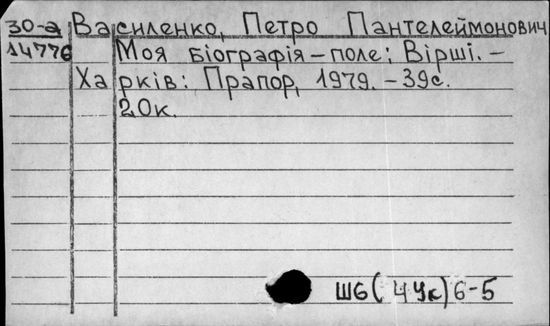 30-а Василенко, Петро Пантелеймонович
14776 Моя біографія – поле: Вірші. –
Харків: Прапор, 1979. – 39с.
20к.
Ш6(4Ук)6-5